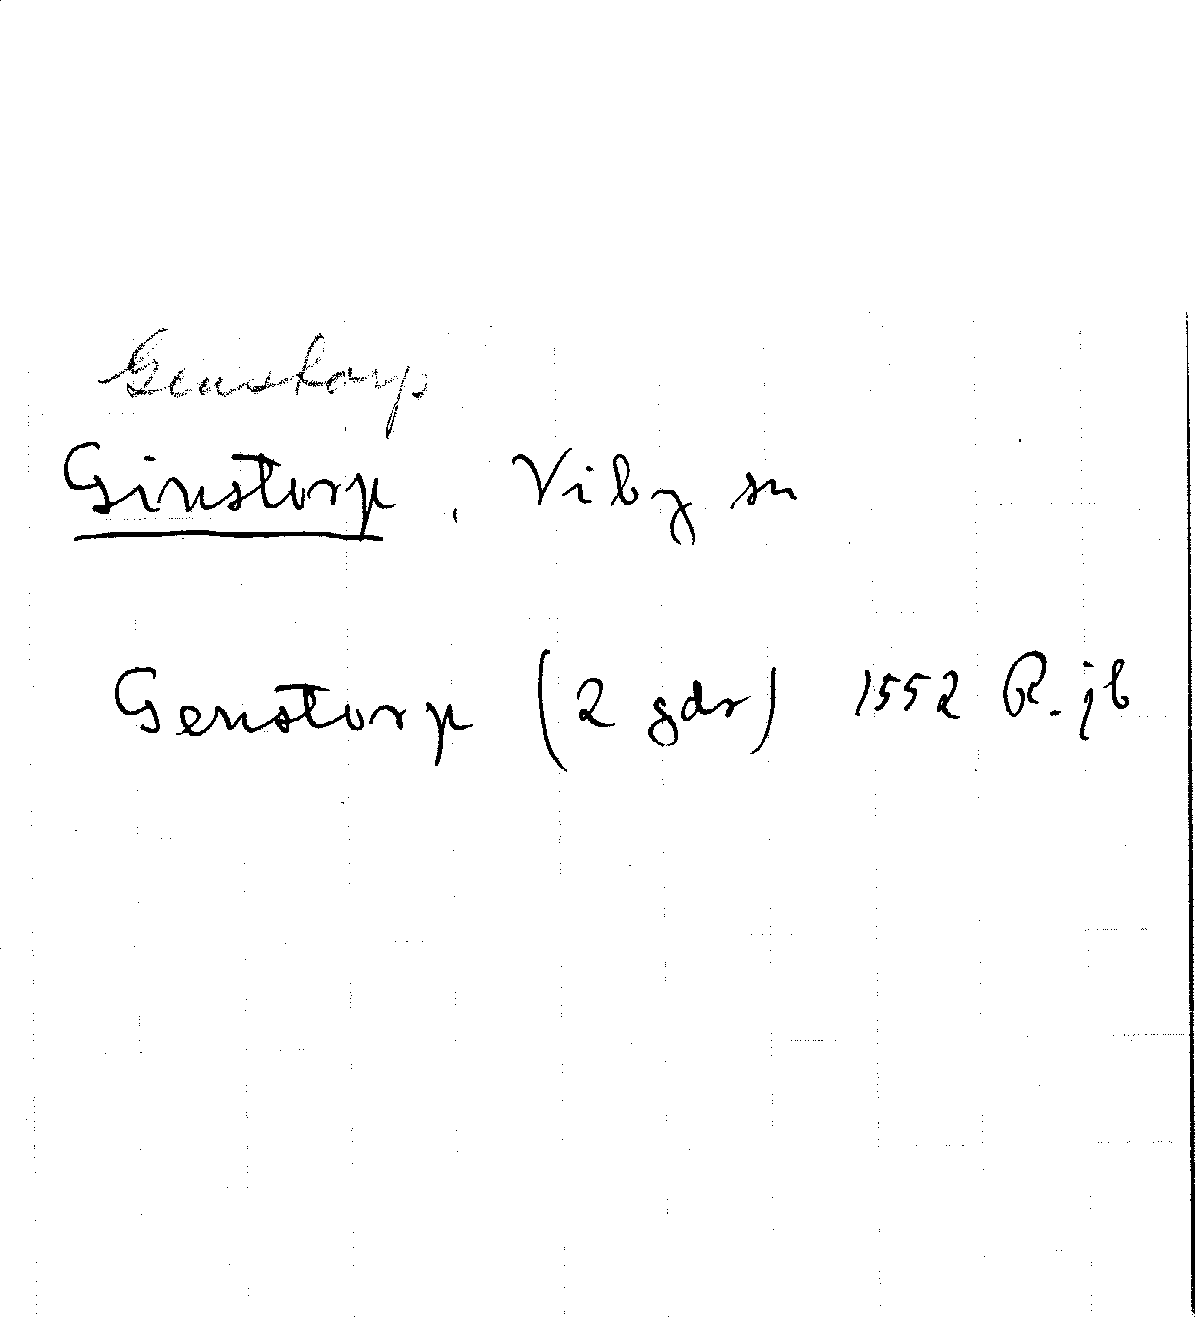 Genstorp
Ginstorp, Viby sn
Genstorp (2 gdr) 1552 R. jb